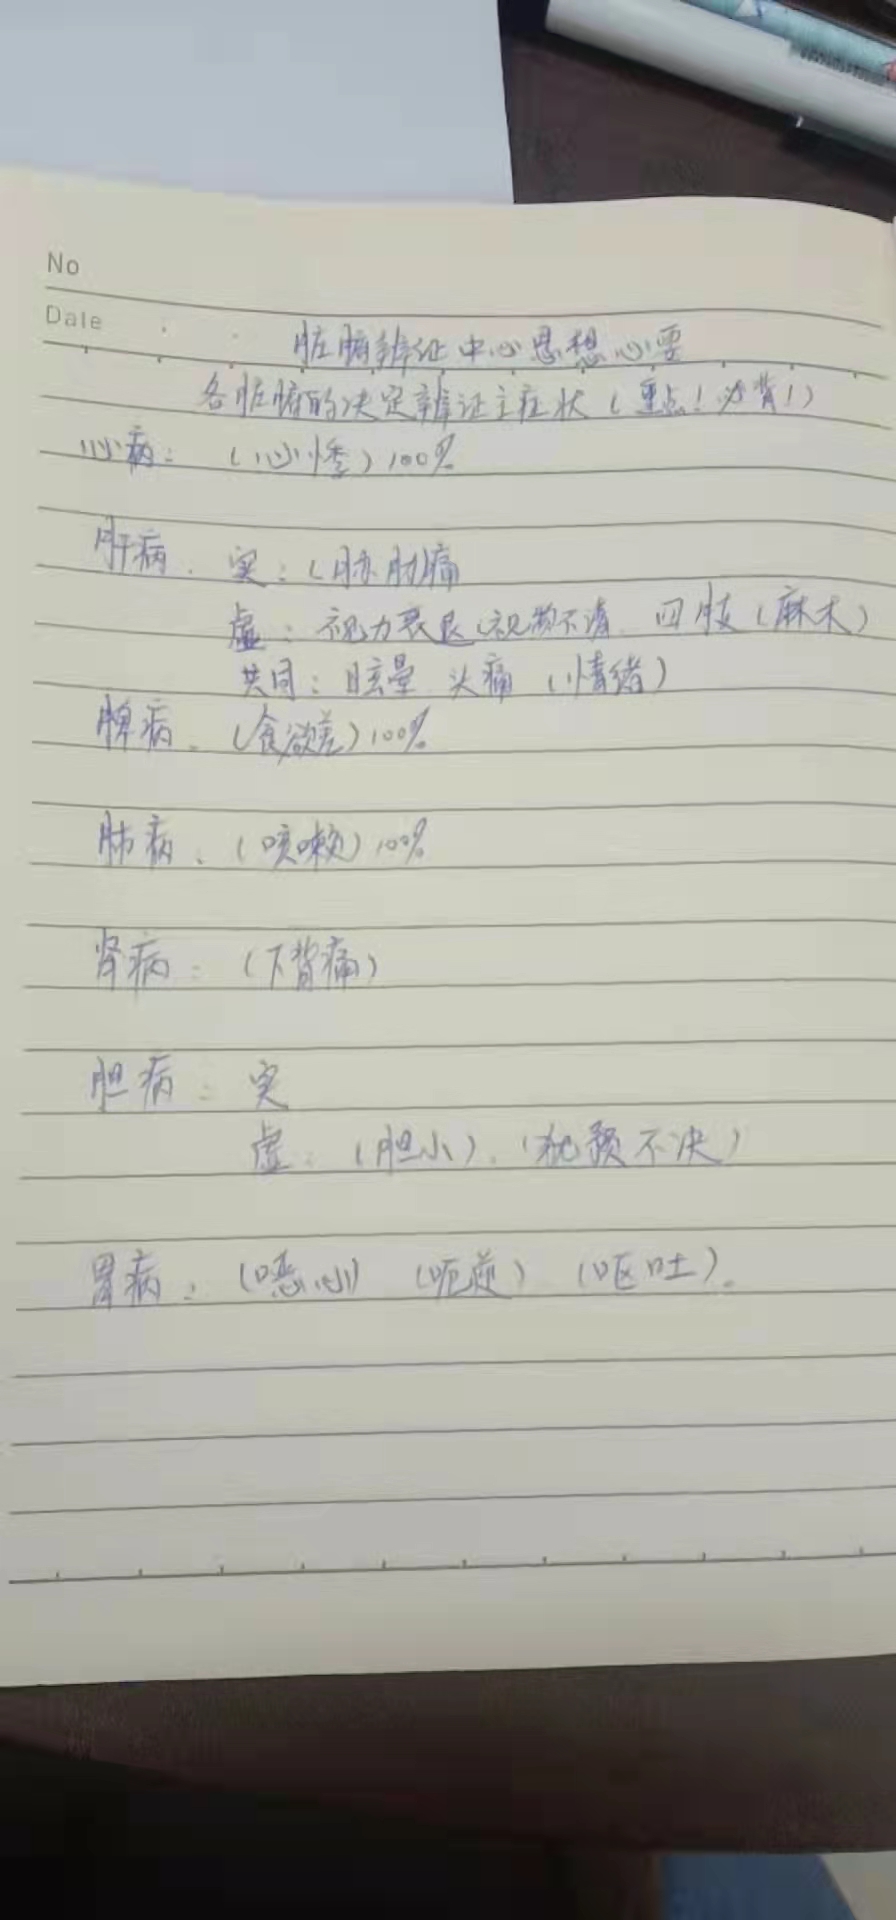 No
Date
脏腑辨证中心思想心要
各脏腑的决定辨证主症状(重点!必背!)
心病:(心悸)100%
肝病. 实:(胁肋)痛
虚:视力衰退(视物不清 四肢(麻木)
共同:眩晕 头痛 (情绪)
脾病.(食欲差)100%
肺病.(咳嗽)100%
肾病:(下背痛)
胆病:实
虚:(胆小).(犹豫不决)
胃病:(恶心) (呃逆) (呕吐).